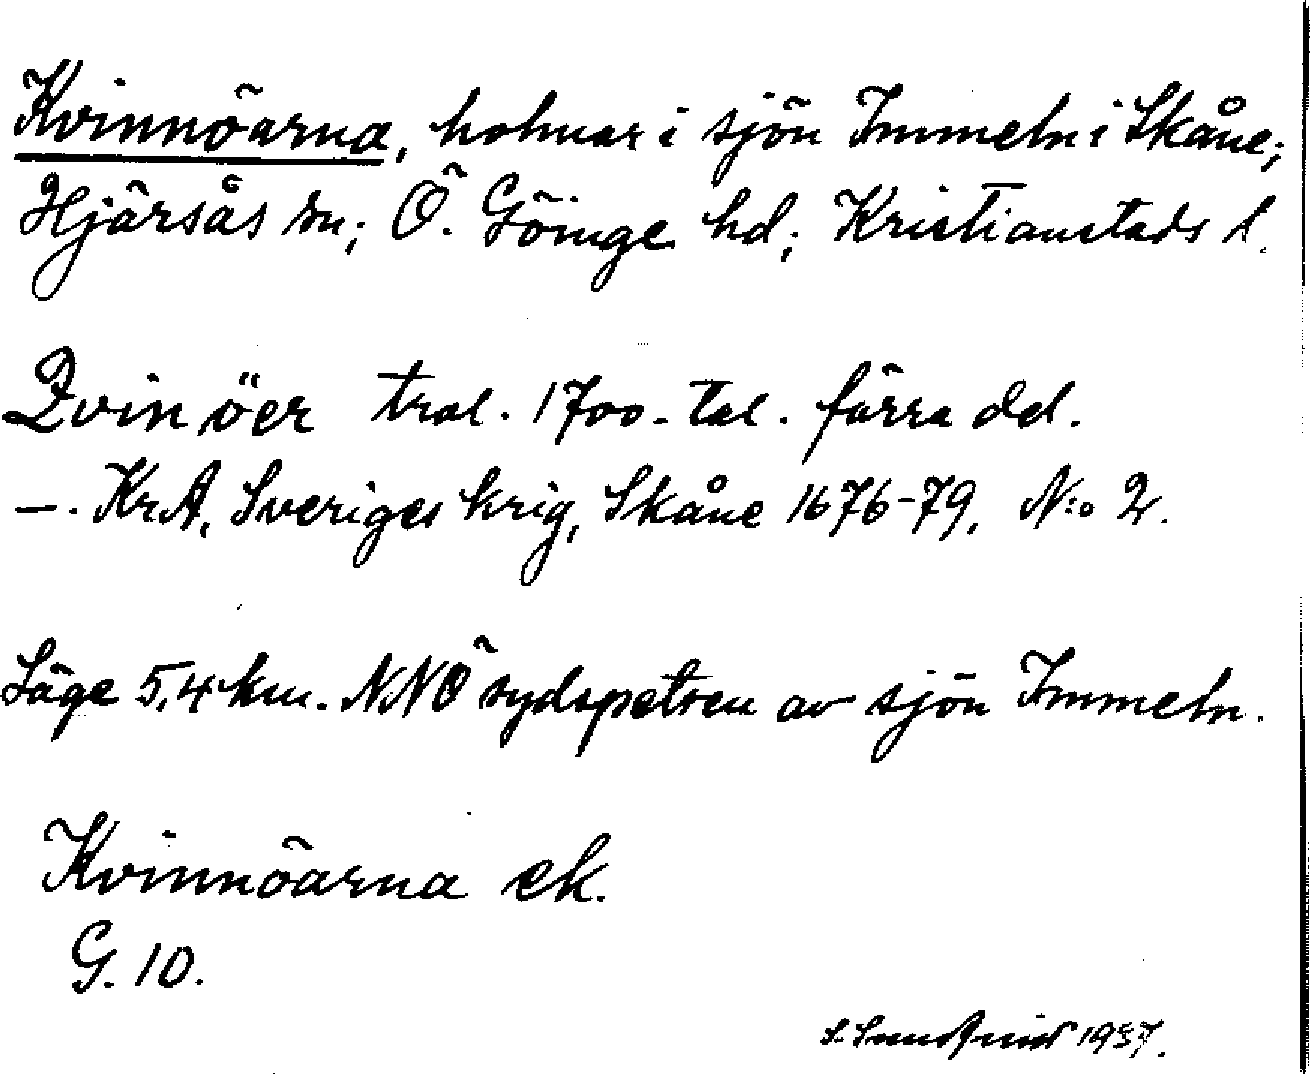 Kvinnöarna, holmar i sjön Immeln i Skåne;
Hjärsås sn; Ö. Göinge hd; Kristianstads l.
Qvin öer trol. 1700-tal. förra del.
—. KrA, Sveriges krig, Skåne 1676-79, N:o 2.
Läge 5,4 km. NNÖ sydspetsen av sjön Immeln.
Kvinnöarna ek.
G. 10.
S. Sundqvist 1937.